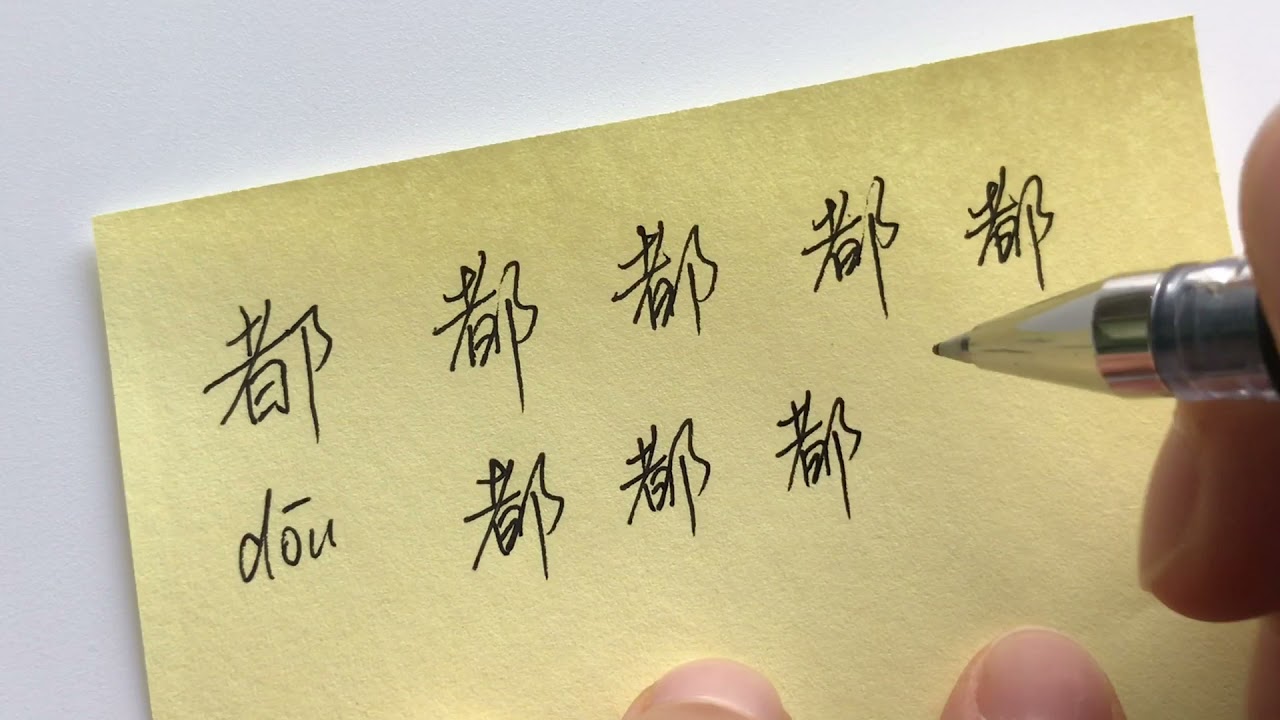 都 都 都 都 都
dōu 都 都 都